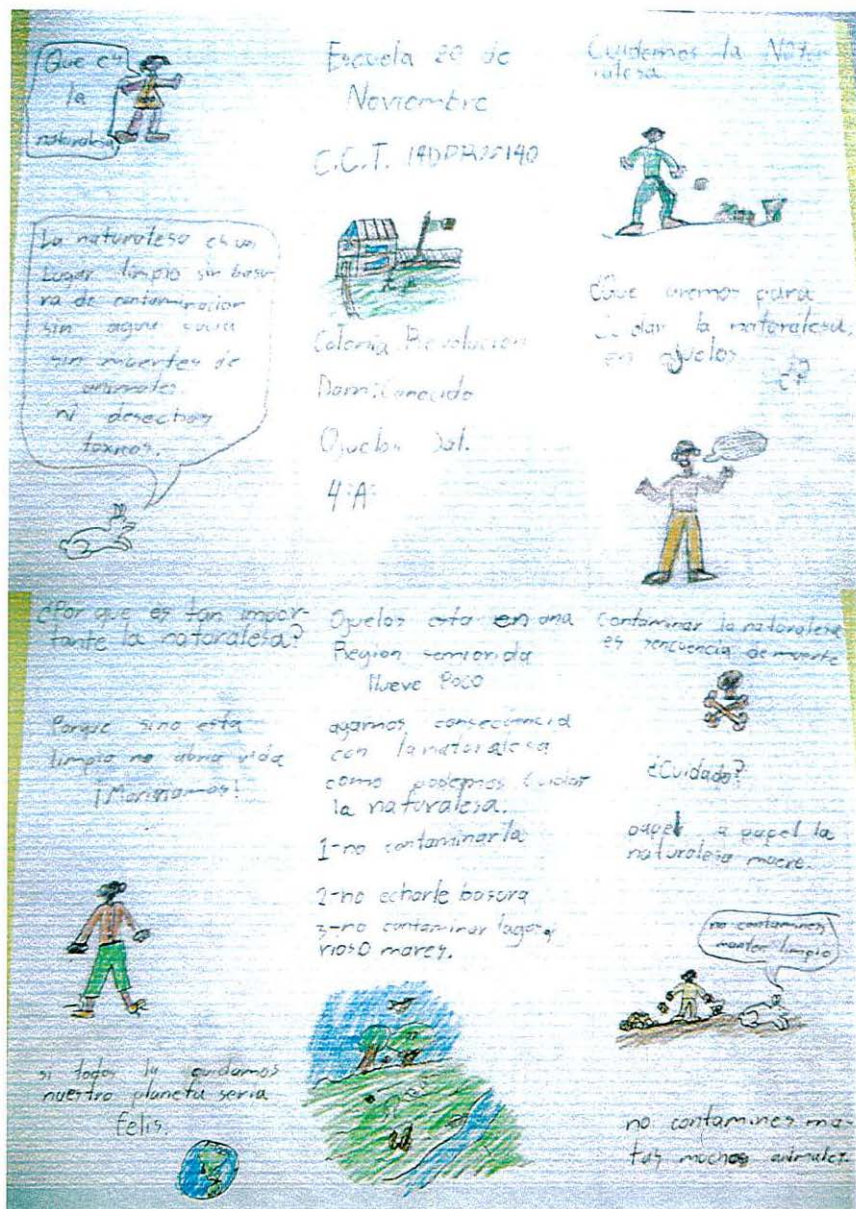 Que es
la
naturalesa
La naturalesa es un
Lugar limpio sin basu-
ra de contaminacion
sin agua sucia
sin muertes de
animales.
ni desechos
toxicos.
Escuela 20 de
Noviembre
C.C.T.
Colonia Revolucion
Dom: Conocido
Ojuelos Jal.
4:A:
Cuidemos la Natu-
ralesa
¿Que aremos para
Cuidar la naturalesa,
en ojuelos
¿?
¿Por que es tan impor-
tante la naturalesa?
Porque sino esta
limpia no abria vida
¡Moririamos!
si todos la cuidamos
nuestro planeta seria
felis.
Ojuelos esta en una
Region semiarida
llueve Poco
agamos conseciencia
con la naturalesa
como podemos cuidar
la naturalesa.
1-no contaminarla
2-no echarle basura
3-no contaminar lagos,
rios O mares.
contaminar la naturalesa
es sencuencia de muerte
¿Cuidado?
papel a papel la
naturalesa muere.
no contamines
manten limpio
no contamines ma-
tas muchos animales.